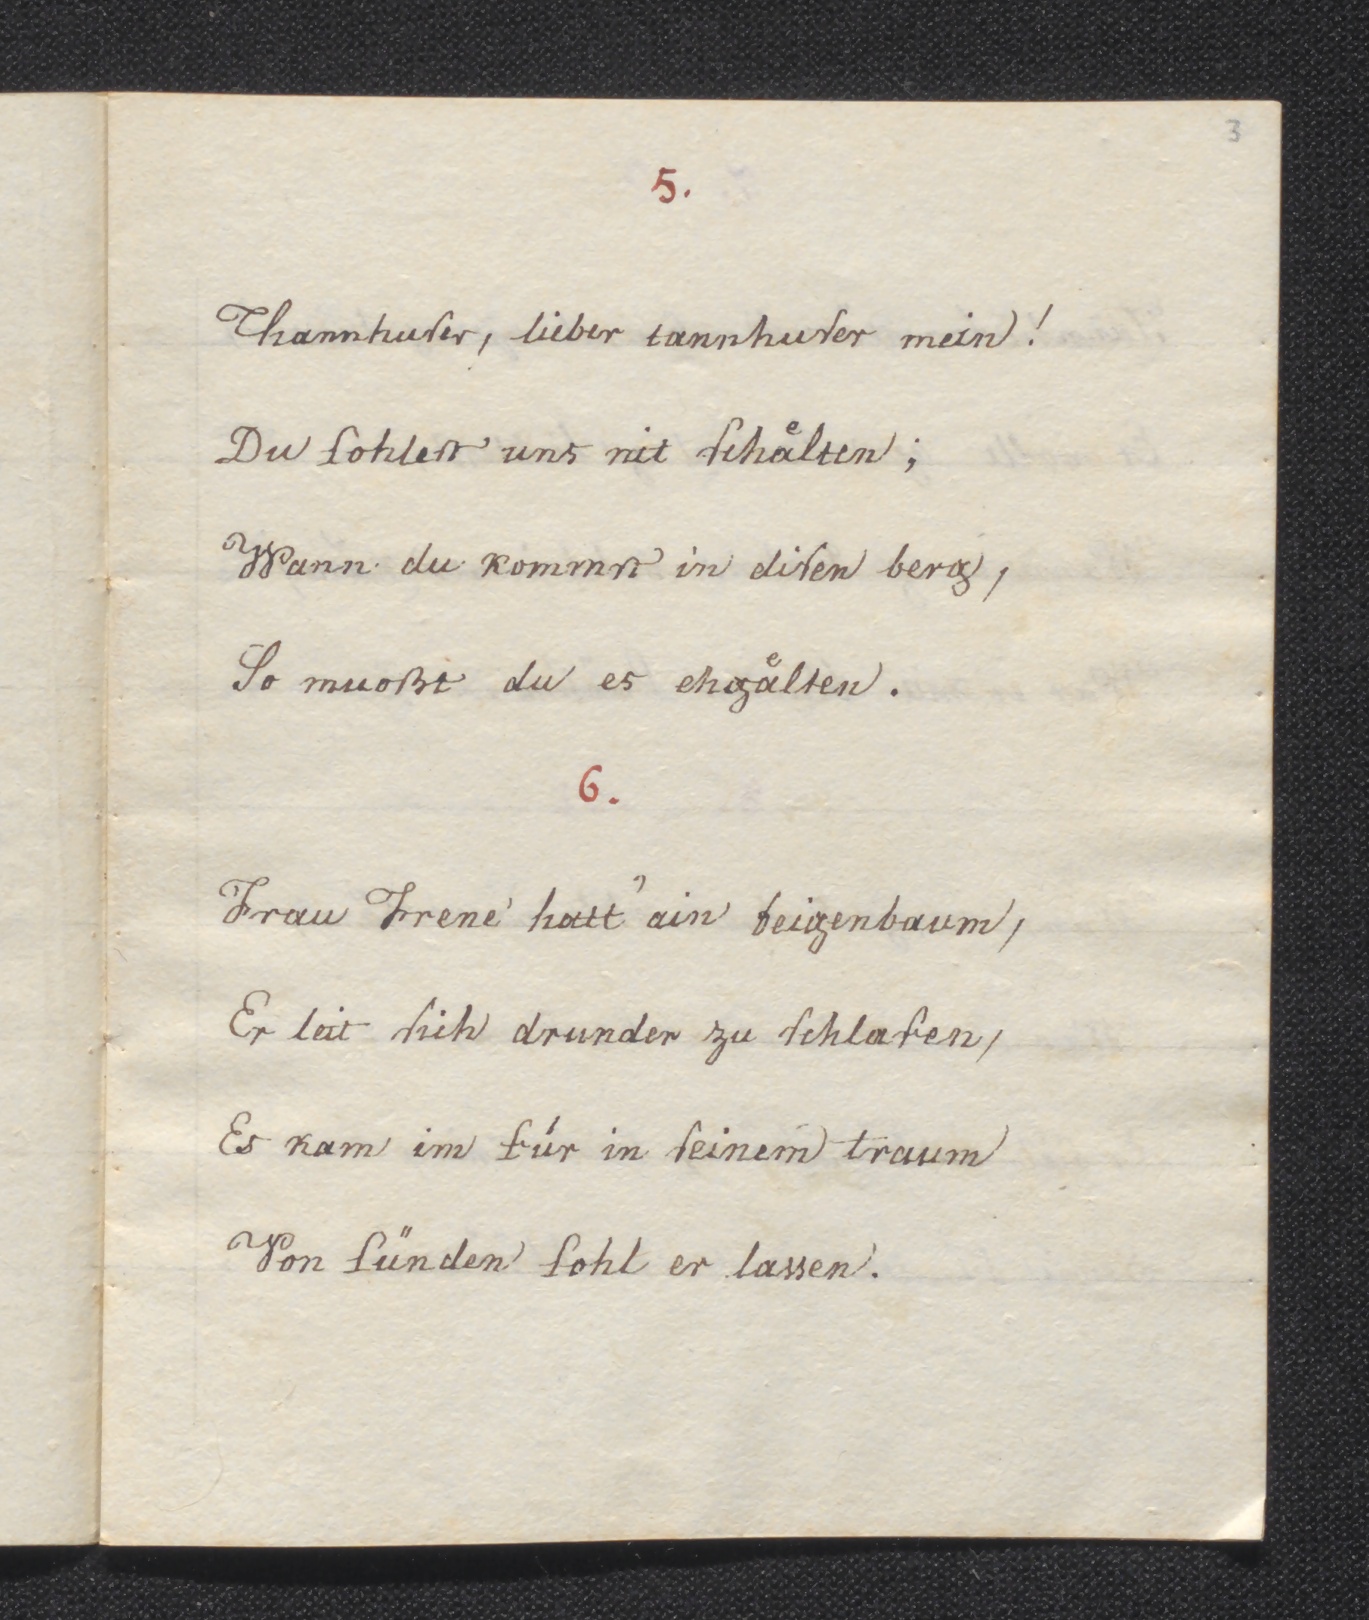 3
5.
Thannhuſer, lieber tannhuſer mein!
Du ſohleſt uns nit ſchaͤlten;
Wann du kommſt in diſen berg,
So muoßt du es ehgaͤlten.
6.
Frau Frene hatt' ain feigenbaum,
Er leit ſich drunder zu ſchlafen,
Es kam im für in ſeinem traum
Von ſünden ſohl er lassen.